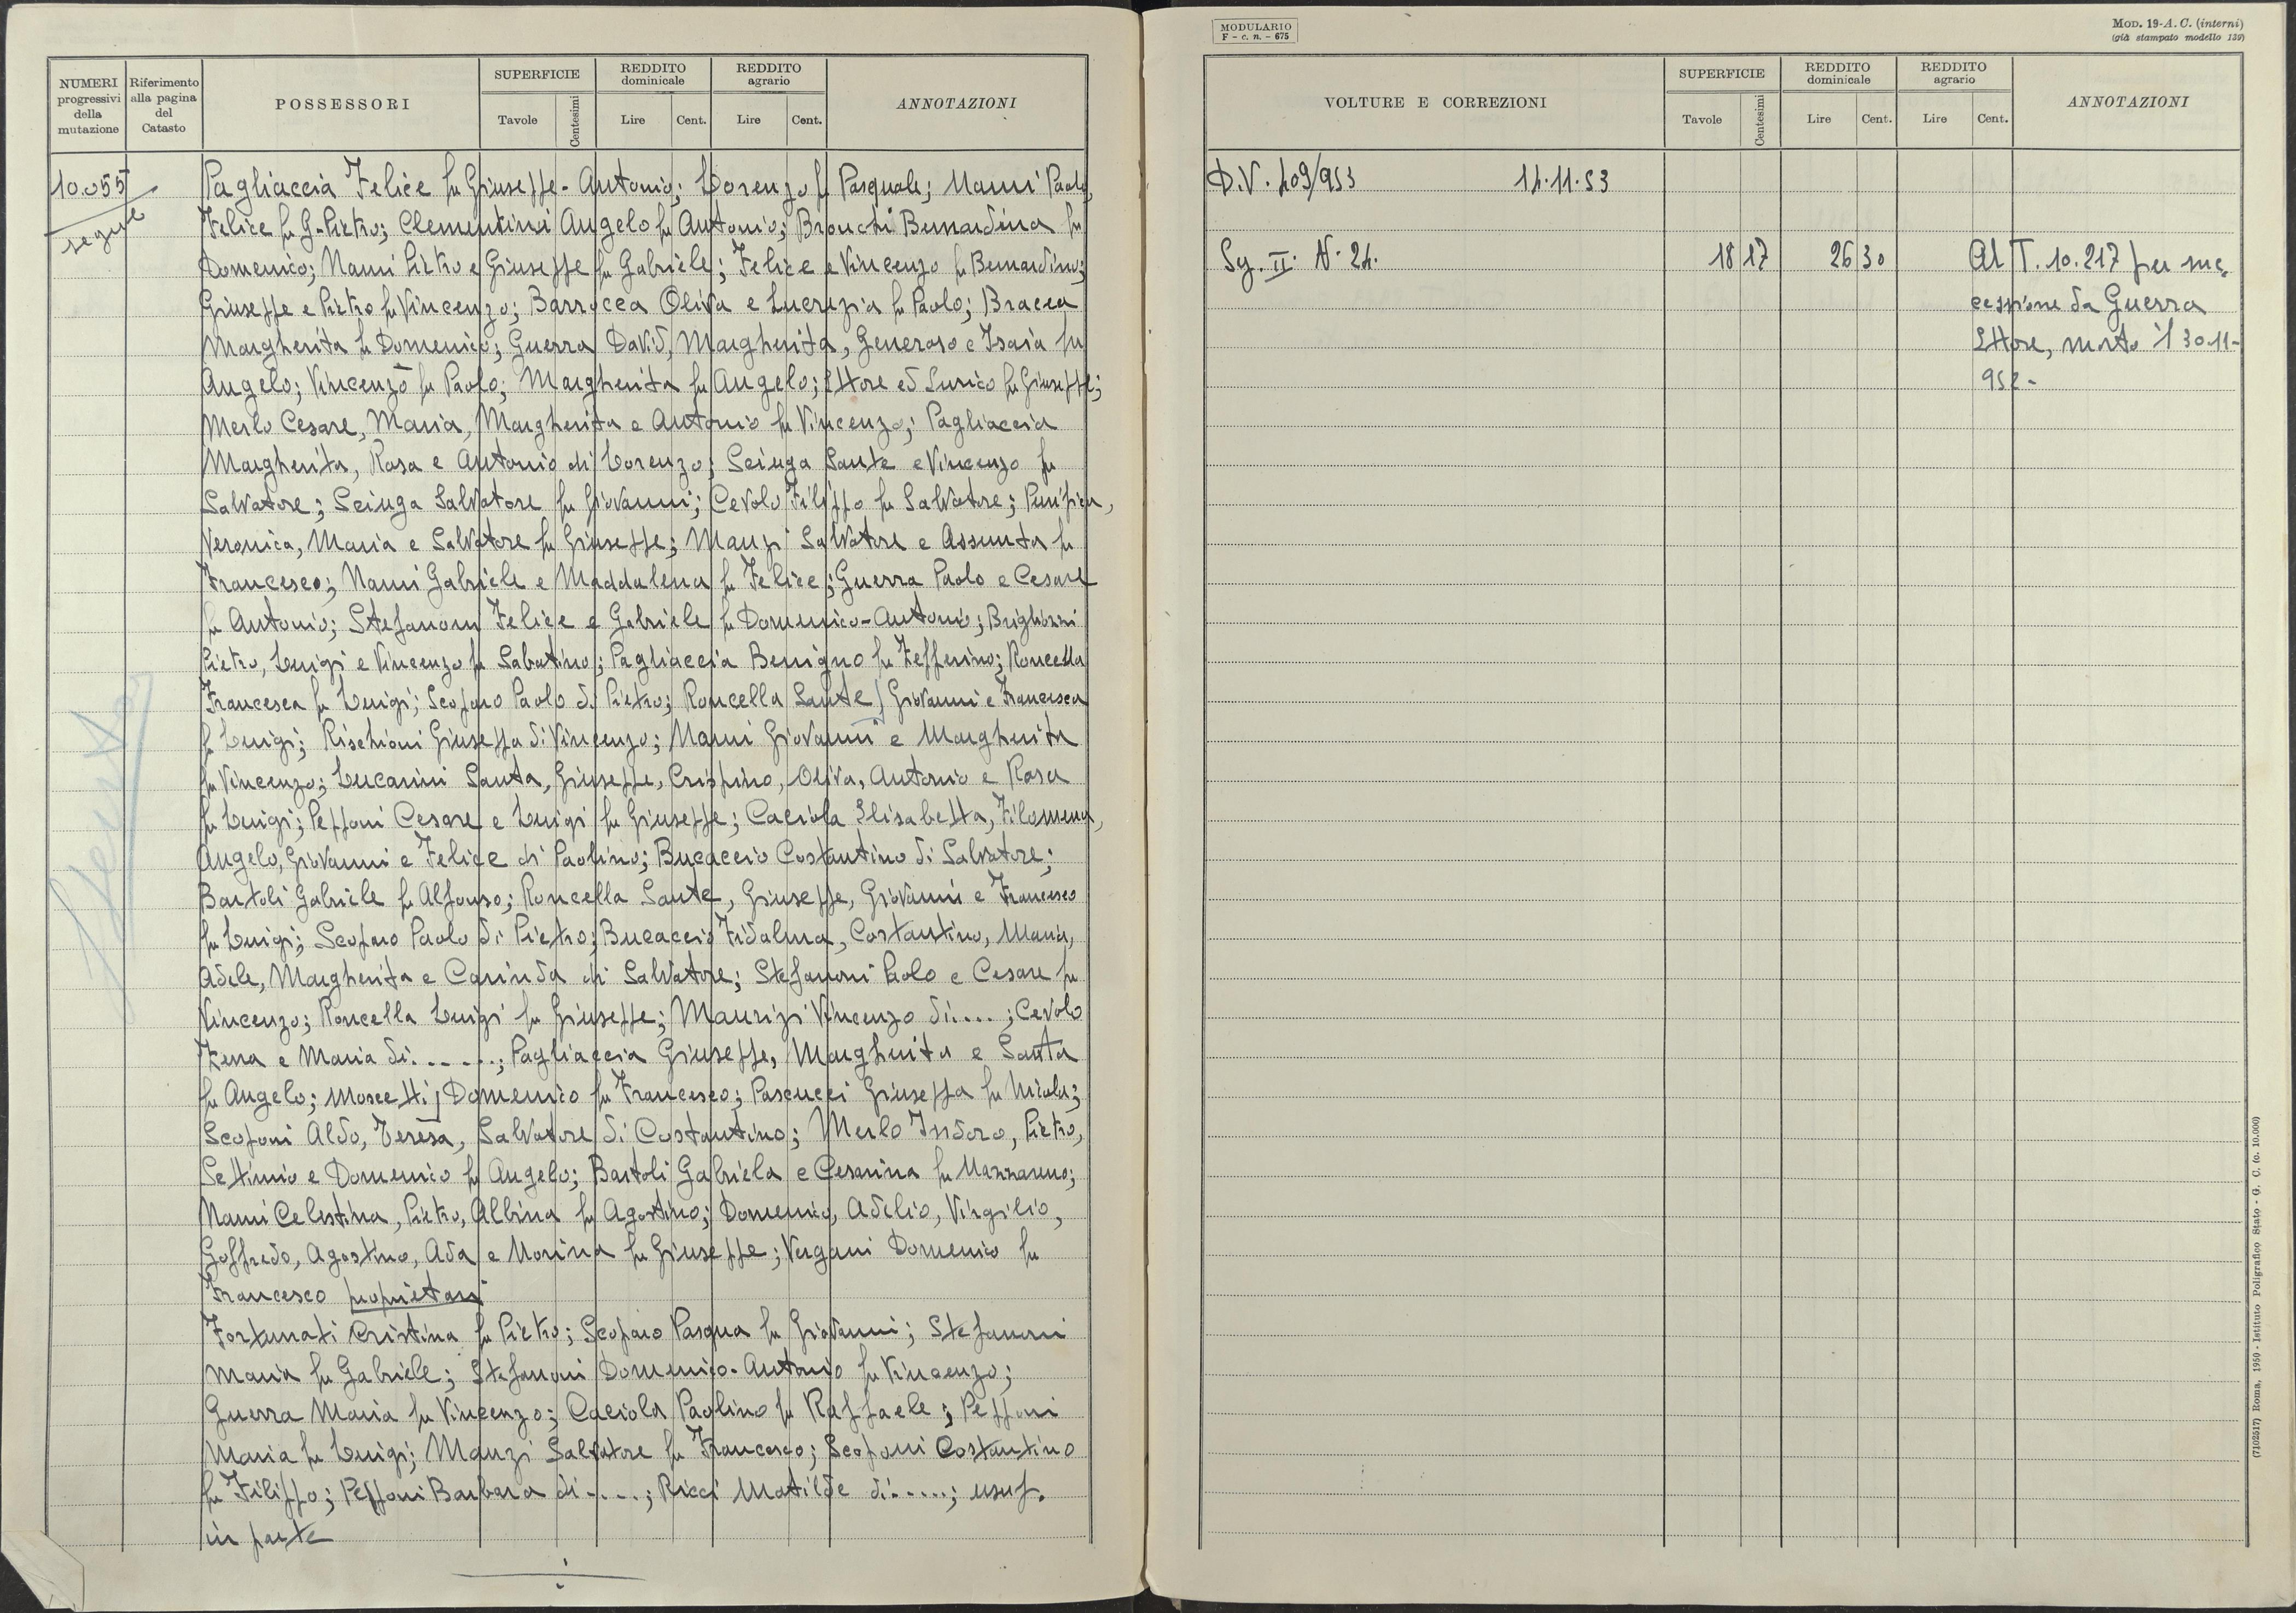 NUMERI progressivi della mutazione
Riferimento alla pagina del Catasto
POSSESSORI
SUPERFICIE
Tavole
Centesimi
REDDITO dominicale
Lire
Cent.
REDDITO agrario
Lire
Cent.
ANNOTAZIONI
10.055
segue
Pagliaccia Felice fu Giuseppe-Antonio; Lorenzo fu Pasquale; Nanni Paolo,
Felice fu G-Pietro; Clementini Angelo fu Antonio; Bronchi Bernardina fu
Domenico; Nanni Pietro e Giuseppe fu Gabriele; Felice e Vincenzo fu Bernardino;
Giuseppe e Pietro fu Vincenzo; Barrocca Oliva e Lucrezia fu Paolo; Bracca
Margherita fu Domenico; Guerra David, Margherita, Generoso e Isaia fu
Angelo; Vincenzo fu Paolo; Margherita fu Angelo; Ettore ed Enrico fu Giuseppe;
Merlo Cesare, Maria, Margherita e Antonio fu Vincenzo; Pagliaccia
Margherita, Rosa e Antonio di Lorenzo; Sciuga Sante e Vincenzo fu
Salvatore; Sciuga Salvatore fu Giovanni; Cevolo Filippo fu Salvatore;
Veronica, Maria e Salvatore fu Giuseppe; Manzi Salvatore e Assunta fu
Francesco; Nanni Gabriele e Maddalena fu Felice; Guerra Paolo e Cesare
fu Antonio; Stefanoni Felice e Gabriele fu Domenico-Antonio; Brighizzi
Pietro, Luigi e Vincenzo fu Sabatino; Pagliaccia Benigno fu Zefferino; Roncella
Francesca fu Luigi; Scoparo Paolo di Pietro; Roncella Sante, Giovanni e Francesca
fu Luigi; Rischioni Giuseppa di Vincenzo; Nanni Giovanni e Margherita
fu Vincenzo; Lucarini Santa, Giuseppe, Crispino, Oliva, Antonio e Rosa
fu Luigi; Pepponi Cesare e Luigi fu Giuseppe; Caciola Elisabetta, Filomena,
Angelo, Giovanni e Felice di Paolino; Bucaccio Costantino di Salvatore;
Bartoli Gabriele fu Alfonso; Roncella Sante, Giuseppe, Giovanni e Francesco
fu Luigi; Scoparo Paolo di Pietro; Bucaccio Fidalma, Costantino, Maria,
Adele, Margherita e Carinda di Salvatore; Stefanoni Paolo e Cesare fu
Vincenzo; Roncella Luigi fu Giuseppe; Maurizi Vincenzo di....; Cevolo
Zena e Maria di......; Pagliaccia Giuseppe, Margherita e Santa
fu Angelo; Moscetti Domenico fu Francesco; Pascucci Giuseppa fu Nicola;
Scoponi Aldo, Teresa, Salvatore di Costantino; Merlo Isidoro, Pietro,
Settimio e Domenico fu Angelo; Bartoli Gabriela e Cesarina fu Nazzareno;
Nanni Celestina, Pietro, Albina fu Agostino; Domenico, Adelio, Virgilio,
Goffredo, Agostino, Ada e Norina fu Giuseppe; Vergani Domenico fu
Francesco proprietari
Fortunati Cristina fu Pietro; Scoparo Pasqua fu Giovanni; Stefanoni
Maria fu Gabriele; Stefanoni Domenico-Antonio fu Vincenzo;
Guerra Maria fu Vincenzo; Caciola Paolino fu Raffaele; Pepponi
Maria fu Luigi; Manzi Salvatore fu Francesco; Scoponi Costantino
fu Filippo; Pepponi Barbara di....; Ricci Matilde di.....; usuf.
in parte
MODULARIO
F - c. n. - 675
MOD. 19-A. C. (interni)
(già stampato modello 139)
VOLTURE E CORREZIONI
SUPERFICIE
Tavole
Centesimi
REDDITO dominicale
Lire
Cent.
REDDITO agrario
Lire
Cent.
ANNOTAZIONI
D.V. 409/953 14.11.53
Sy. II. N. 24. 18 17 26 30 Al T. 10.217 per suc.
cessione da Guerra
Ettore, morto il 30-11-
952-
(7102517) Roma, 1950 - Istituto Poligrafico Stato - G. C. (c. 10.000)